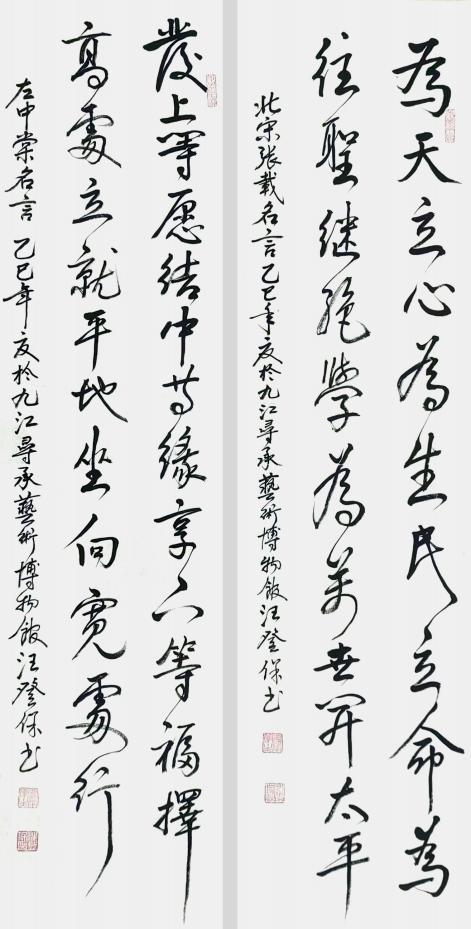 為天立心為生民立命為
往聖继絶學為萬世開太平
北宋張載名言乙巳年夏於九江尋承藝術博物館汪登保书
發上等愿结中等缘享下等福擇
高處立就平地坐向宽處行
左中棠名言乙巳年夏於九江尋承藝術博物館汪登保书